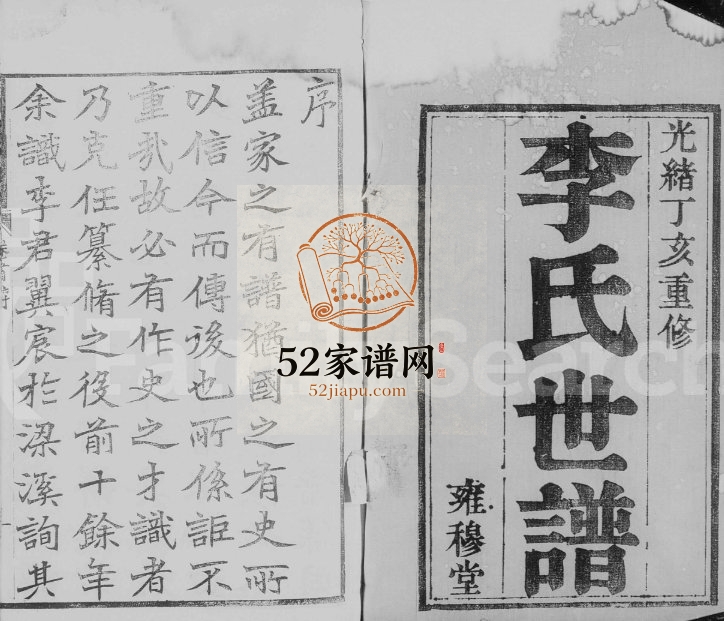 光緒丁亥重修
李氏世譜
雍穆堂
序
盖家之有譜猶國之有史所
以信今而傳後也所係詎不
重哉故必有作史之才識者
乃克任纂脩之役前十餘年
余識李君翼宸於梁溪詢其
52家谱网
52jiapu.com
FamilySearch